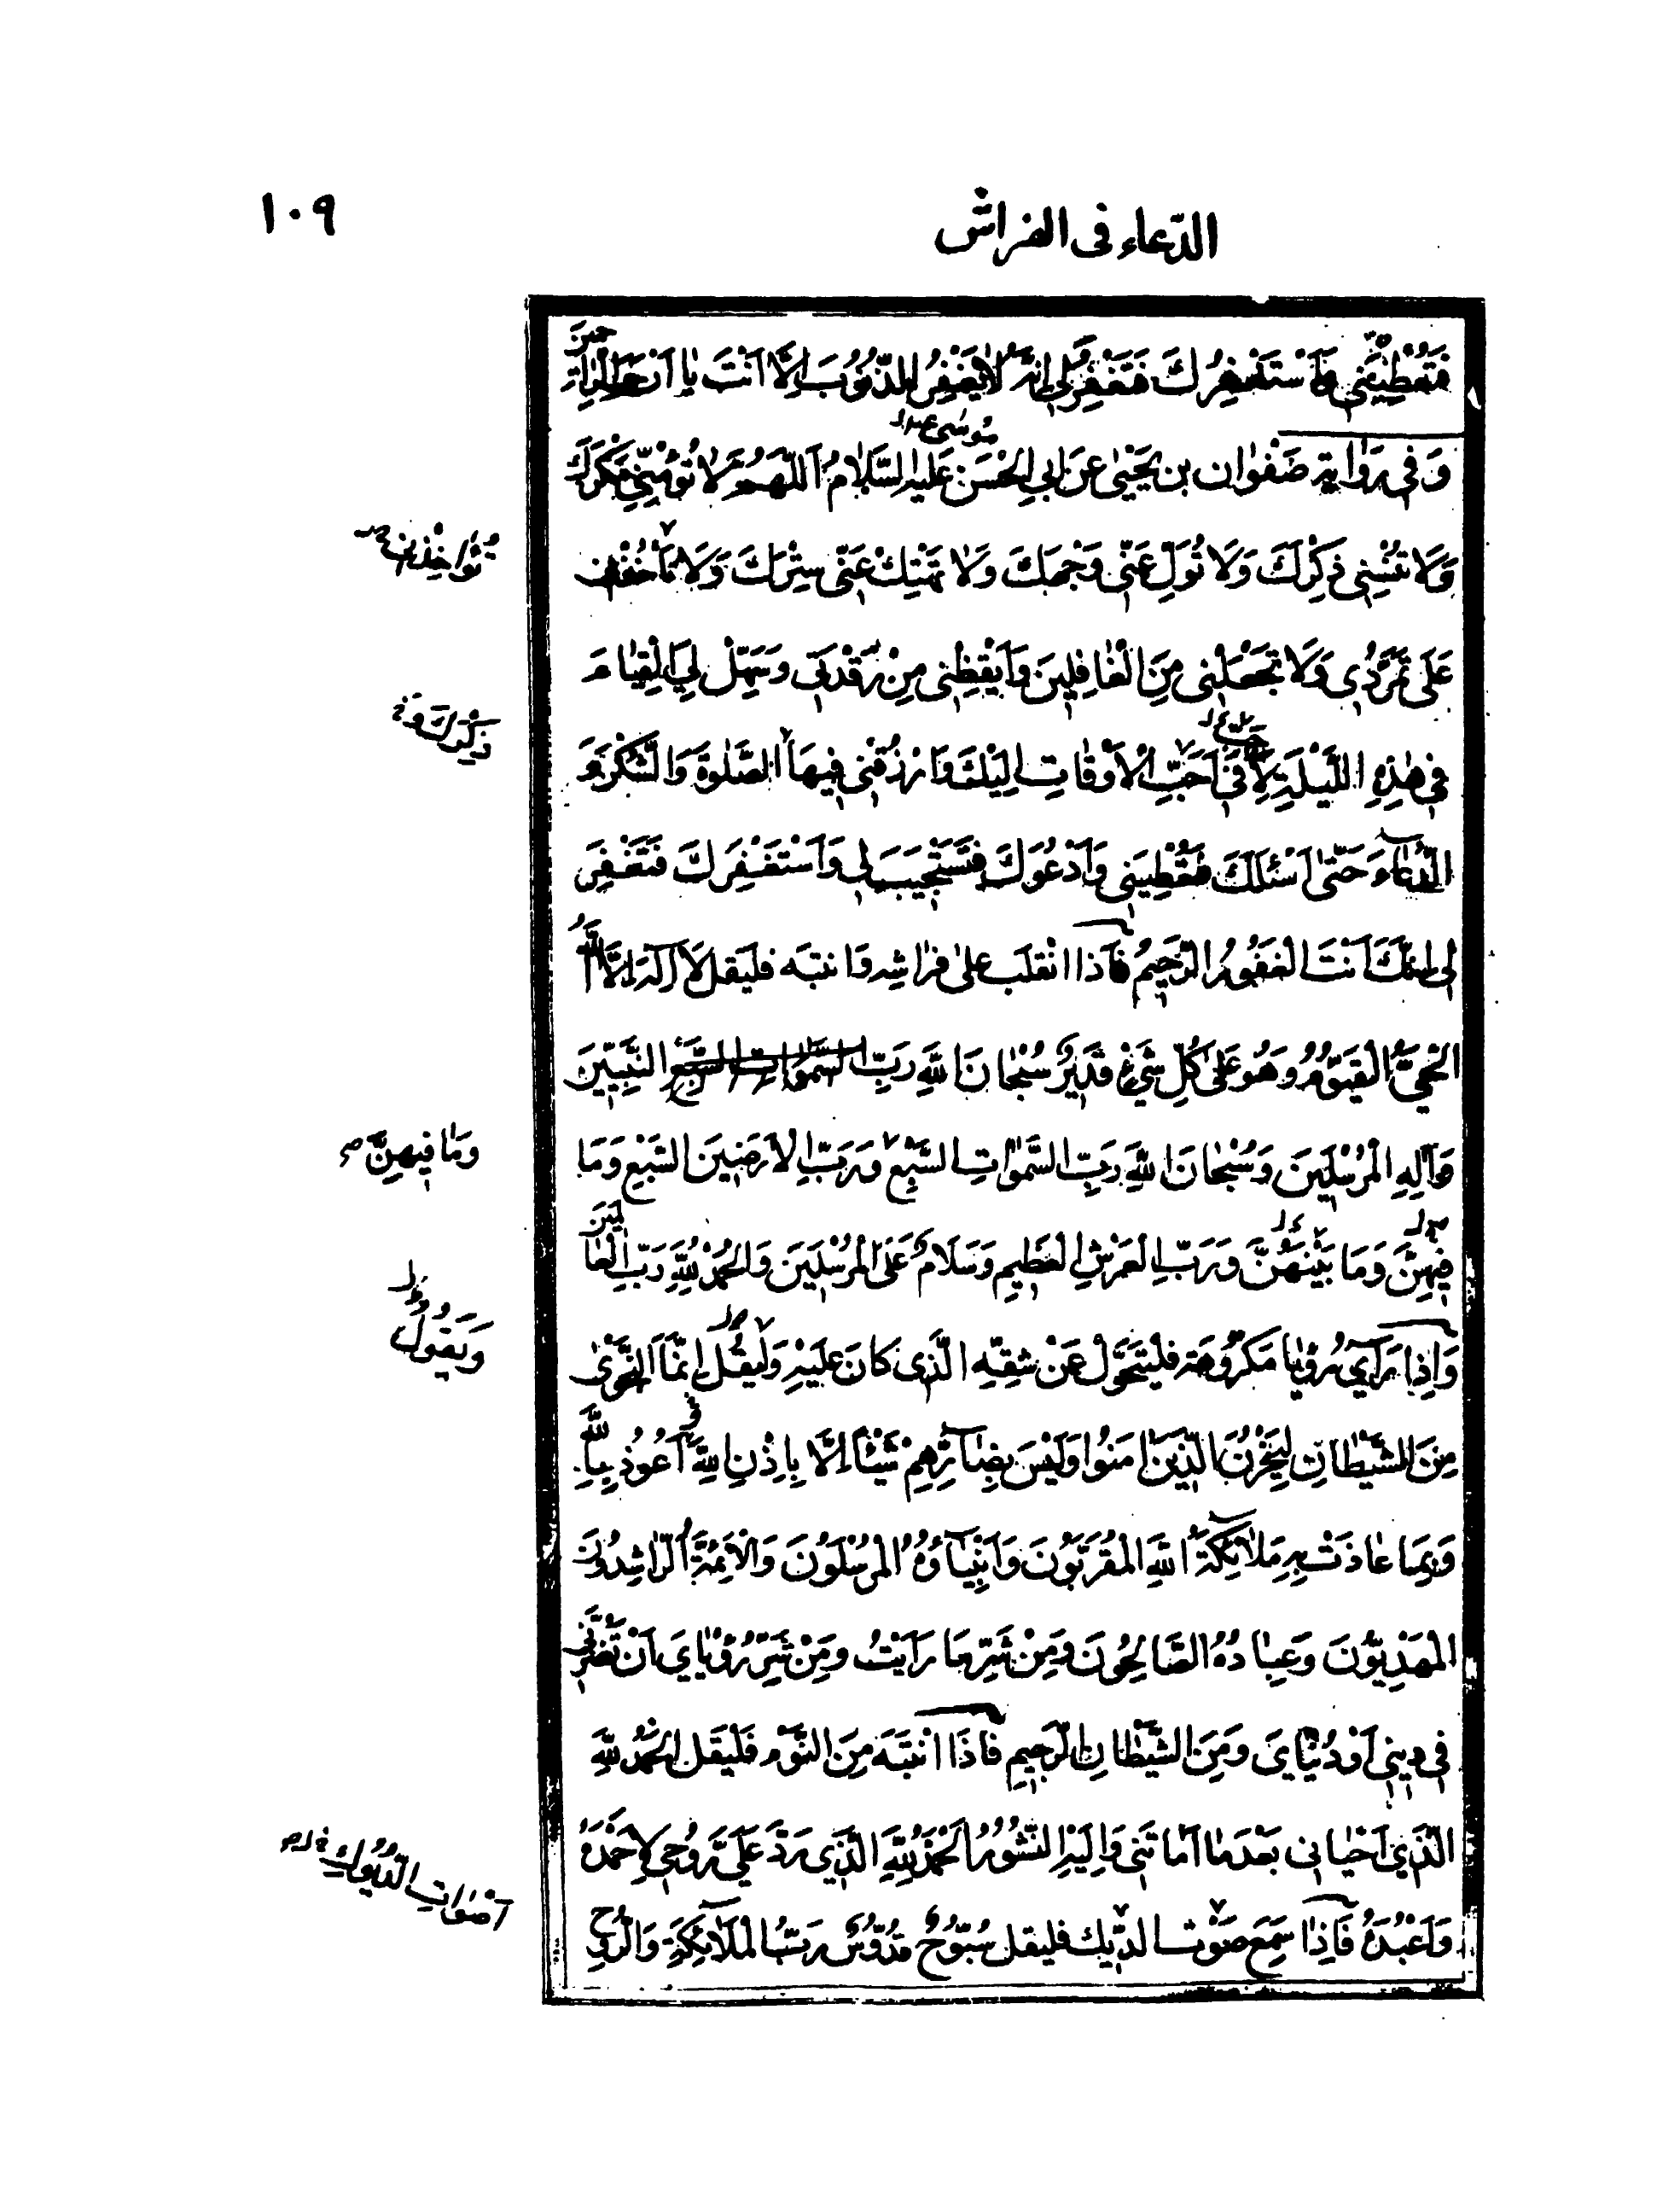 الدّعاء فى الفراش
١٠٩
فَتُعْطِيَنِي وَاَسْتَغْفِرُكَ فَتَغْفِرَ لِي اِنَّهُ لَا يَغْفِرُ الذُّنُوبَ اِلَّا اَنْتَ يٰا اَرْحَمَ الرّٰاحِمِينَ
وَفِي رَوٰايَةِ صَفْوٰان بن يَحْيٰى عَنْ اَبِي الْحَسَنِ مُوسٰى عَلَيْهِ السَّلٰامُ اَللّٰهُمَّ لٰا تُؤْمِنِّي مَكْرَكَ
وَلَا تُنْسِنِي ذِكْرَكَ وَلَا تُوَلِّ عَنّي وَجْهَكَ وَلٰا تَهْتِكْ عَنّي سِتْرَكَ وَلَا تَأْخُذْنِي
تُؤٰاخِذْنِي
عَلَى تَمَرُّدِي وَلَا تَجْعَلْنِي مِنَ الْغٰافِلِينَ وَاَيْقِظْنِي مِنْ رَقْدَتِي وَسَهِّلْ لِيَ الْقِيٰامَ
فِي هٰذِهِ اللَّيْلَةِ فِي اَحَبِّ الْاَوْقٰاتِ اِلَيْكَ وَارْزُقْنِي فِيهَا الصَّلٰوةَ وَالشُّكْرَ وَ
ذِكْرَكَ وَ
الدُّعٰاءَ حَتّٰى اَسْئَلَكَ فَتُعْطِيَنِي وَاَدْعُوَكَ فَتَسْتَجِيبَ لِي وَاَسْتَغْفِرَكَ فَتَغْفِرَ
لِي اِنَّكَ اَنْتَ الْغَفُورُ الرَّحِيمُ فَاذا انْقَلَب عَلىٰ فراشِهِ وَانتبَه فليَقل لَا اِلٰهَ اِلَّا اللّٰهُ
الْحَيُّ الْقَيُّومُ وَهُوَ عَلىٰ كُلِّ شَيْءٍ قَدِيرٌ سُبْحٰانَ اللّٰهِ رَبِّ السَّمٰوٰاتِ السَّبْعِ النَّبِيّينَ
وَاِلٰهِ الْمُرْسَلِينَ وَسُبْحٰانَ اللّٰهِ رَبِّ السَّمٰوٰاتِ السَّبْعِ وَرَبِّ الْاَرَضِينَ السَّبْعِ وَمَا
وَمٰا فِيهِنَّ
فِيهِنَّ وَمَا بَيْنَهُنَّ وَرَبِّ الْعَرْشِ الْعَظِيمِ وَسَلَامٌ عَلَى الْمُرْسَلِينَ وَالْحَمْدُ لِلّٰهِ رَبِّ الْعٰالَمِينَ
وَاِذٰا رَآى رُؤْيٰا مَكْرُوهَة فَلْيَتَحَوَّلْ عَنْ شِقِّهِ الَّذِي كٰانَ عَلَيْهِ وَلْيَقُلْ اِنَّمَا النَّجْوٰى
وَيَقُولُ
مِنَ الشَّيْطٰانِ لِيَحْزُنَ الَّذِينَ اٰمَنُوا وَلَيْسَ بِضٰارِّهِمْ شَيْئاً اِلَّا بِاِذْنِ اللّٰهِ اَعُوذُ بِاللّٰهِ
وَبِمَا عٰاذَتْ بِهِ مَلٰائِكَةُ اللّٰهِ الْمُقَرَّبُونَ وَاَنْبِيٰاؤُهُ الْمُرْسَلُونَ وَالْاَئِمَّةُ الرّٰاشِدُونَ
الْمَهْدِيُّونَ وَعِبٰادُهُ الصَّالِحُونَ وَمِنْ شَرِّ مٰا رَاَيْتُ وَمِنْ شَرِّ رُؤْيٰايَ اَنْ تَضُرَّنِي
فِي دِينِي اَوْ دُنْيٰايَ وَمِنَ الشَّيْطٰانِ الرَّجِيمِ فَاذَا انْتَبَهَ مِنَ النَّوْم فَلْيَقل الْحَمْدُ لِلّٰهِ
الَّذِي اَحْيٰانِي بَعْدَ مٰا اَمٰاتَنِي وَاِلَيْهِ النُّشُورُ اَلْحَمْدُ لِلّٰهِ الَّذِي رَدَّ عَلَيَّ رُوحِي لِاَحْمَدَهُ
وَاَعْبُدَهُ فَاِذٰا سَمِعَ صَوْتَ الدِّيك فليقل سُبُّوحٌ قُدُّوسٌ رَبُّ الْمَلٰائِكَةِ وَالرُّوحِ
اَصْوٰاتَ الدُّيُوكِ